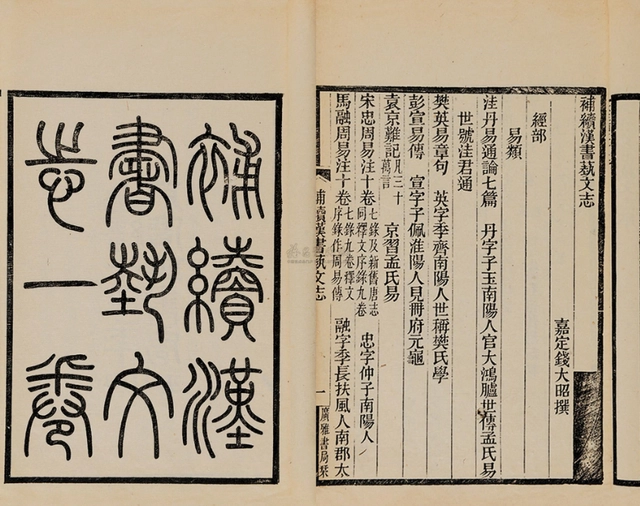 補續漢
書藝文
志一卷
補續漢書藝文志
嘉定錢大昭撰
經部
易類
洼丹易通論七篇 丹字子玉南陽人官大鴻臚世傳孟氏易
世號洼君通
樊英易章句 英字季齊南陽人世稱樊氏學
彭宣易傳 宣字子佩淮陽人見冊府元龜
袁京難記 凡三十萬言 京習孟氏易
宋忠周易注十卷 七錄及新舊唐志同釋文序錄九卷 忠字仲子南陽人
馬融周易注十卷 七錄九卷釋文序錄作周易傳 融字季長扶風人南郡太
補續漢書藝文志 一 廣雅書局栞